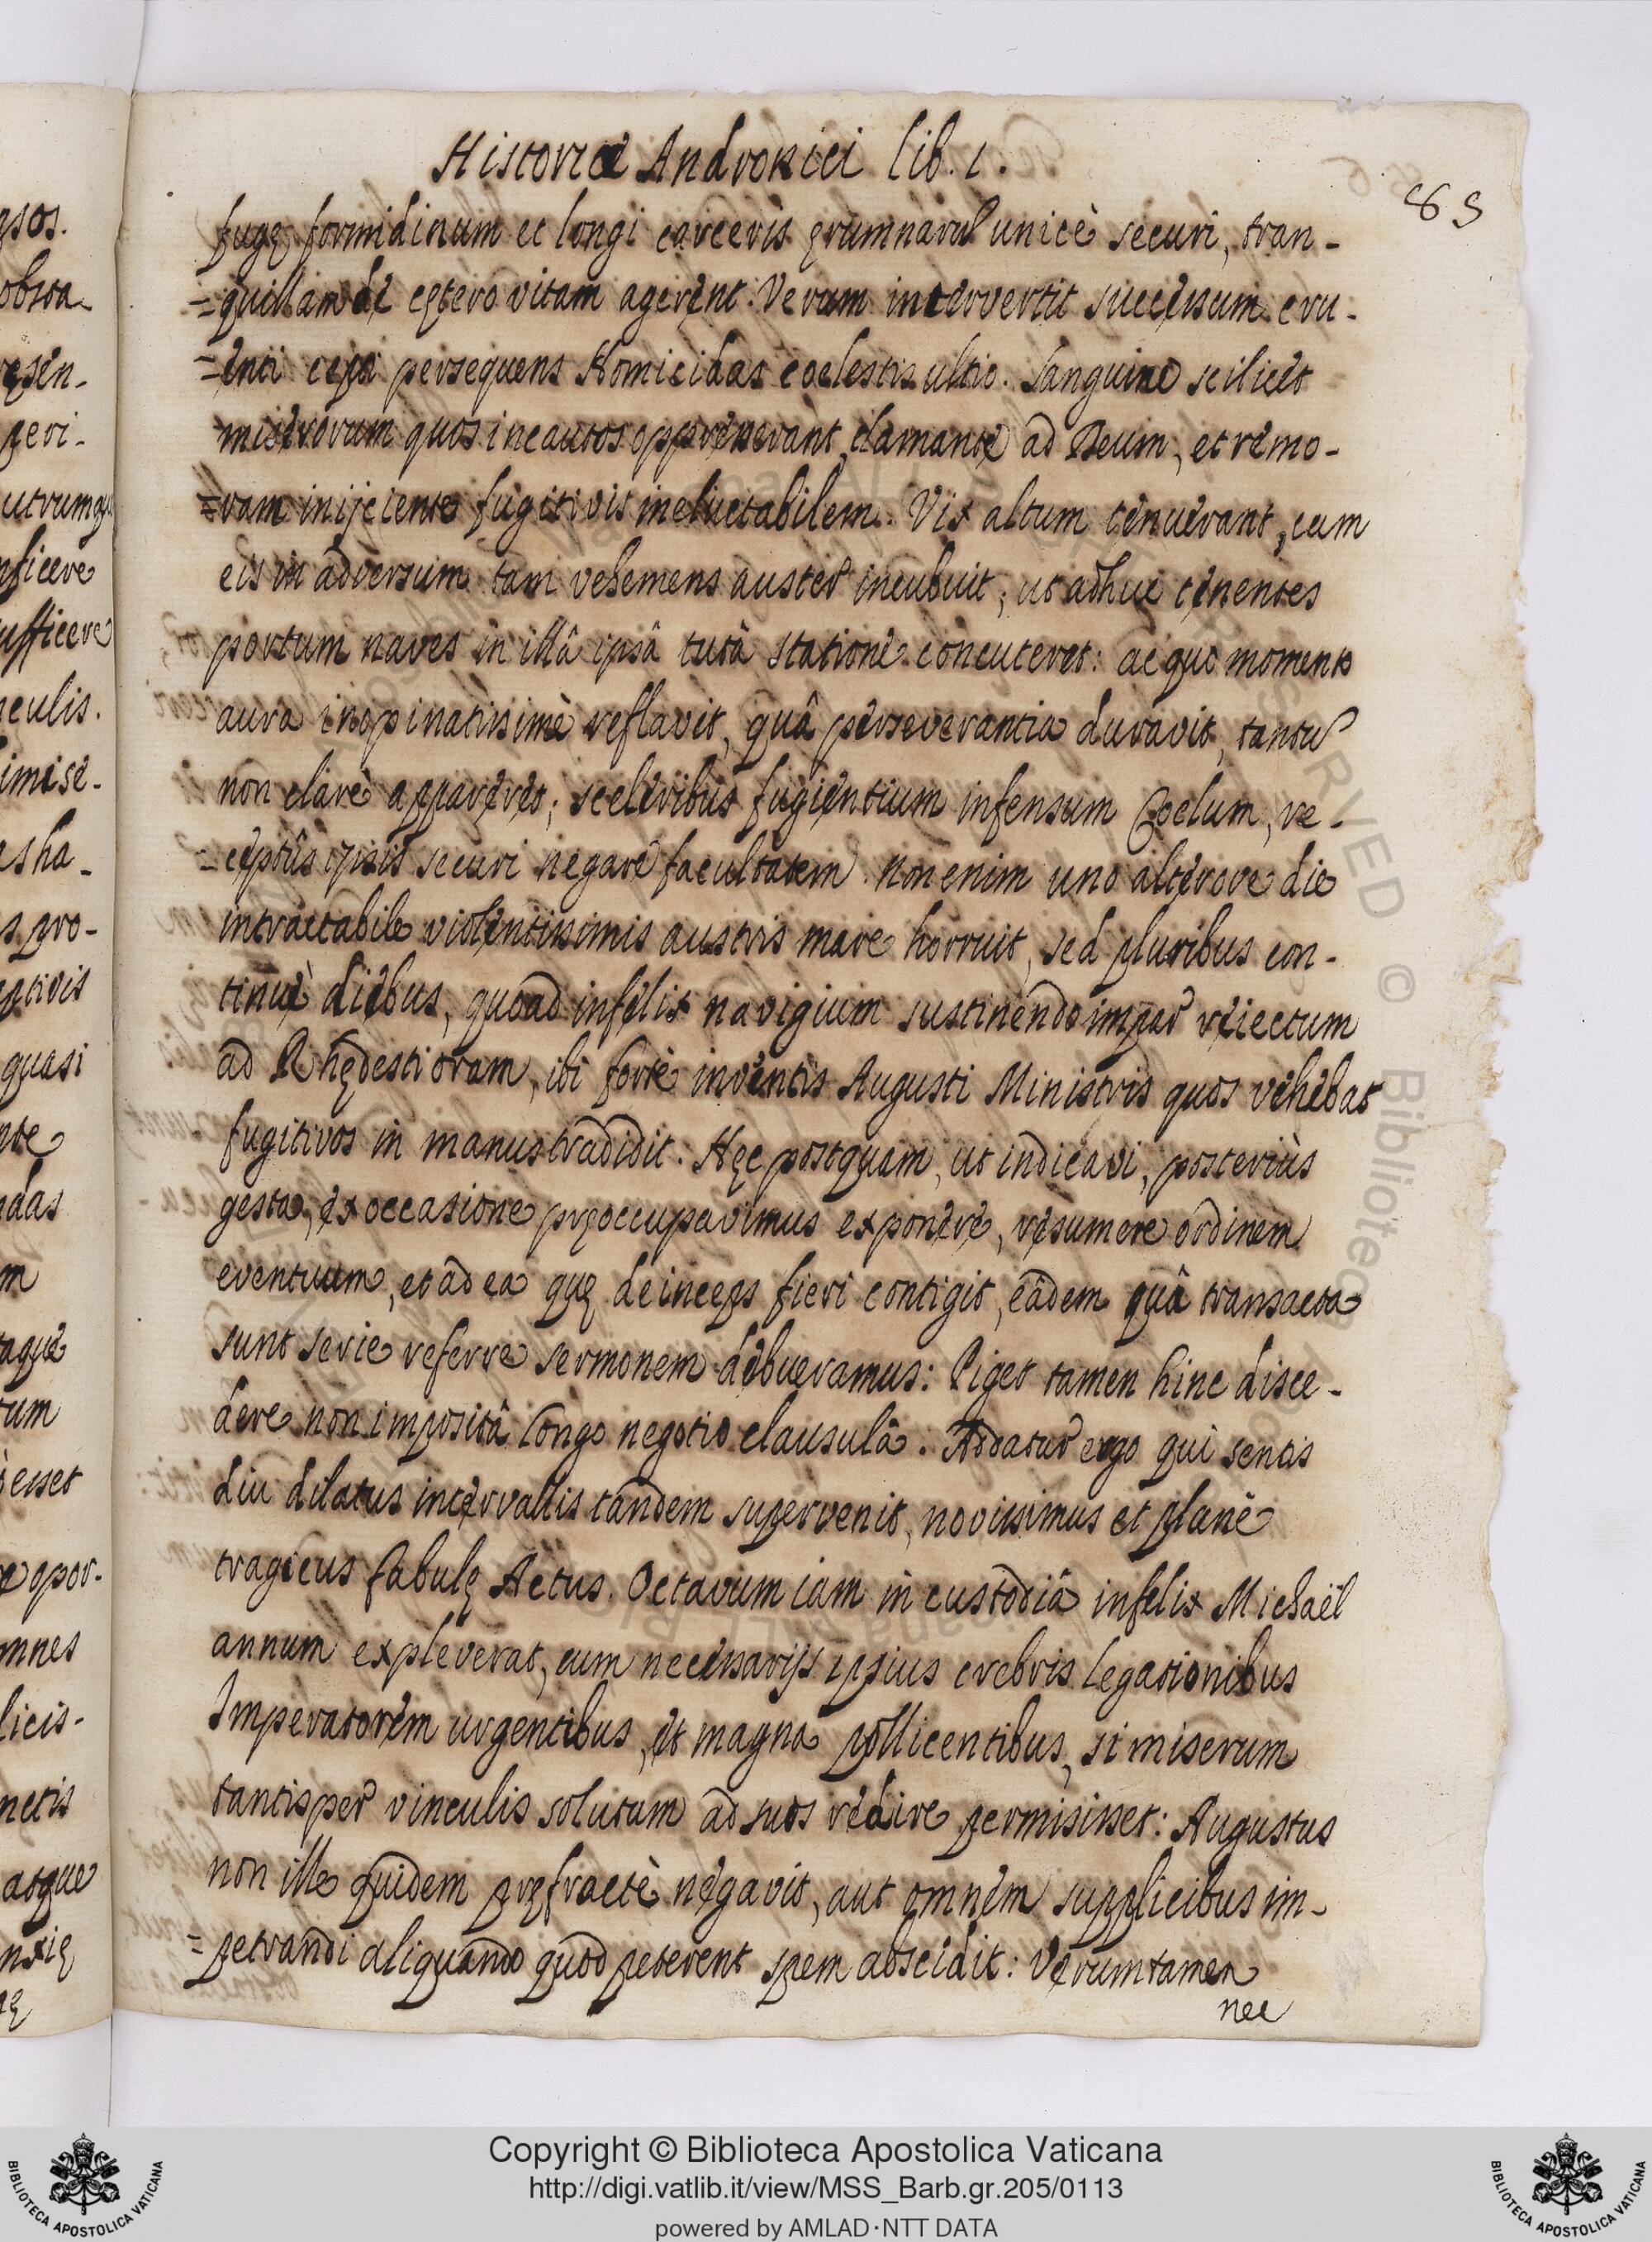 Historiæ Andronici lib. 1.
869
fugę formidinum et longi carceris ęrumnarũ unicè securi, tran-
=quillam de cętero vitam agerent. Verum intervertit successum cru-
=enti cępti persequens Homicidas coelestis ultio. Sanguine scilicet
miserorum quos incautos oppresserant, clamante ad Deum, et remo-
=ram inijciente fugitivis ineluctabilem. Vix altum tenuerant, cum
eis in adversum tam vehemens auster incubuit; ut adhuc tenentes
portum naves in illâ ipsâ tutâ statione concuteret: ac quo momento
aura inopinatissimè reflavit, quâ perseverantia duravit, tantũ
non clarè appareret; sceleribus fugientium infensum Coelum, re-
=ceptûs ipsis securi negare facultatem. Non enim uno alterove die
intractabile violentissimis austris mare horruit, sed pluribus con-
tinuè diebus, quoad infelix navigium sustinendo impar reiectum
ad Rhędesti oram, ibi fortè inventis Augusti Ministris quos vehebat
fugitivos in manus tradidit. Hęc postquam, ut indicavi, posteriùs
gesta, ex occasione pręoccupavimus exponere, resumere ordinem
eventuum, et ad ea quę deinceps fieri contigit, eâdem quâ transacta
sunt serie referre sermonem debueramus: Piget tamen hinc disce-
dere non impositâ longo negotio clausulâ. Addatur ergo qui sentis
diu dilatus intervallis tandem supervenit, novissimus et planè
tragicus fabulę Actus. Octavum iam in custodiâ infelix Michaël
annum expleverat, cum necessarijs ipsius crebris legationibus
Imperatorem urgentibus, et magna pollicentibus, si miserum
tantisper vinculis solutum ad suos redire permisisset: Augustus
non ille quidem pręfractè negavit, aut omnem supplicibus im-
=petrandi aliquando quod peterent spem abscidit: Verumtamen
nec
Copyright © Biblioteca Apostolica Vaticana
http://digi.vatlib.it/view/MSS_Barb.gr.205/0113
powered by AMLAD·NTT DATA
BIBLIOTECA APOSTOLICA VATICANA
BIBLIOTECA APOSTOLICA VATICANA